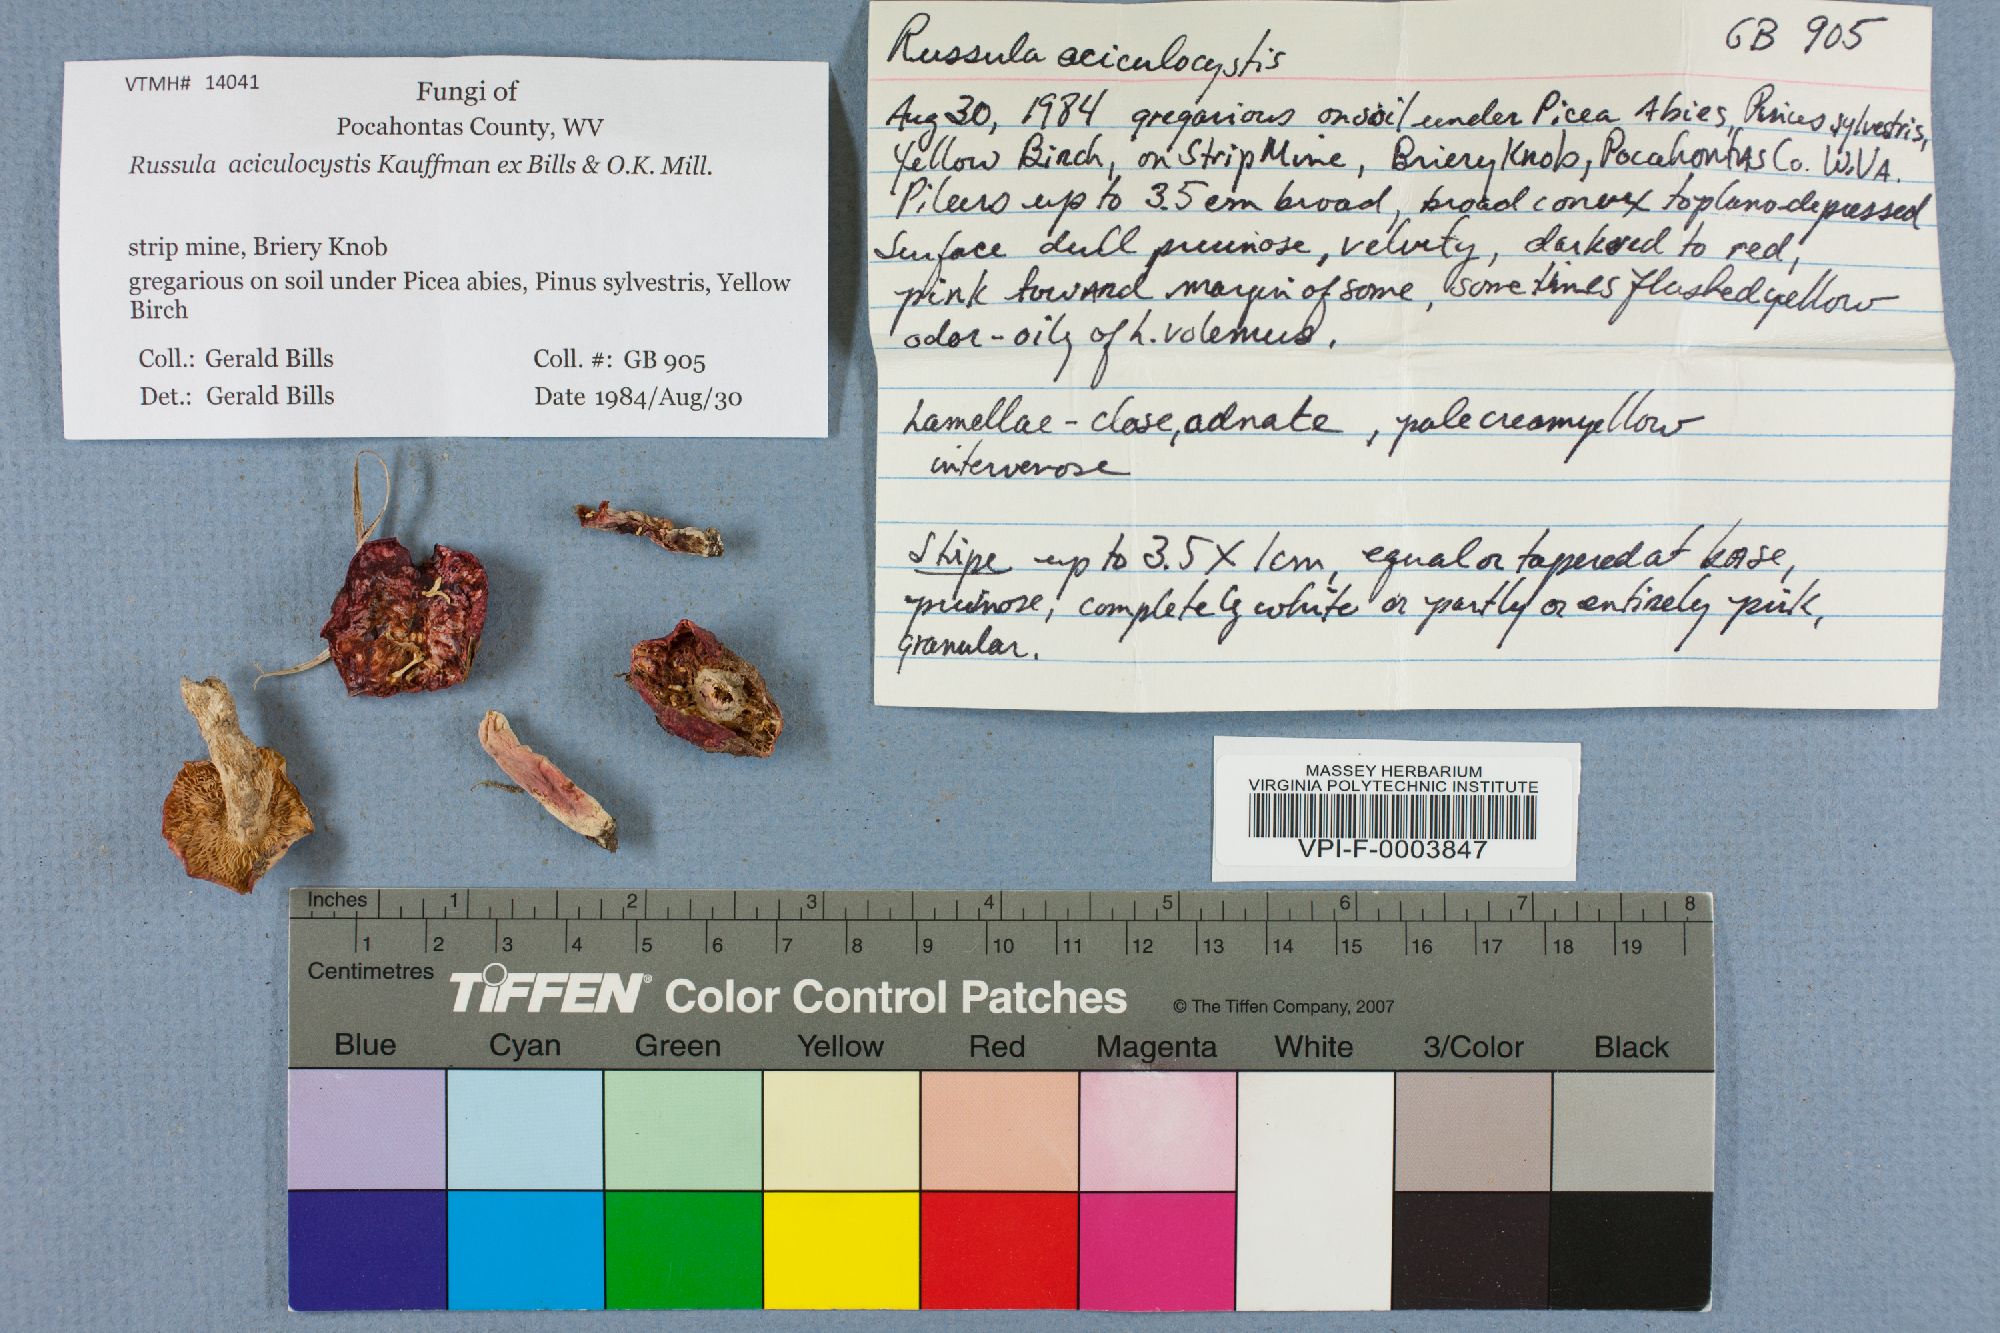 VTMH# 14041
Fungi of
Pocahontas County, WV
Russula aciculocystis Kauffman ex Bills & O.K. Mill.
strip mine, Briery Knob
gregarious on soil under Picea abies, Pinus sylvestris, Yellow
Birch
Coll.: Gerald Bills Coll. #: GB 905
Det.: Gerald Bills Date 1984/Aug/30
GB 905
Russula aciculocystis
Aug 30, 1984 gregarious on soil under Picea Abies, Pinus sylvestris,
Yellow Birch, on Strip Mine, Briery Knob, Pocahontas Co. W.VA.
Pileus up to 3.5 cm broad, broad convex to plano-depressed
Surface dull pruinose, velvety, dark red to red,
pink toward margin of some, sometimes flushed yellow
odor - oily of L. volemus.
Lamellae - close, adnate, pale cream yellow
intervenose
Stipe up to 3.5 X 1cm, equal or tapered at base,
pruinose, completely white or partly or entirely pink,
granular.
MASSEY HERBARIUM
VIRGINIA POLYTECHNIC INSTITUTE
VPI-F-0003847
Inches 1 2 3 4 5 6 7 8
1 2 3 4 5 6 7 8 9 10 11 12 13 14 15 16 17 18 19
Centimetres
TIFFEN® Color Control Patches © The Tiffen Company, 2007
Blue Cyan Green Yellow Red Magenta White 3/Color Black